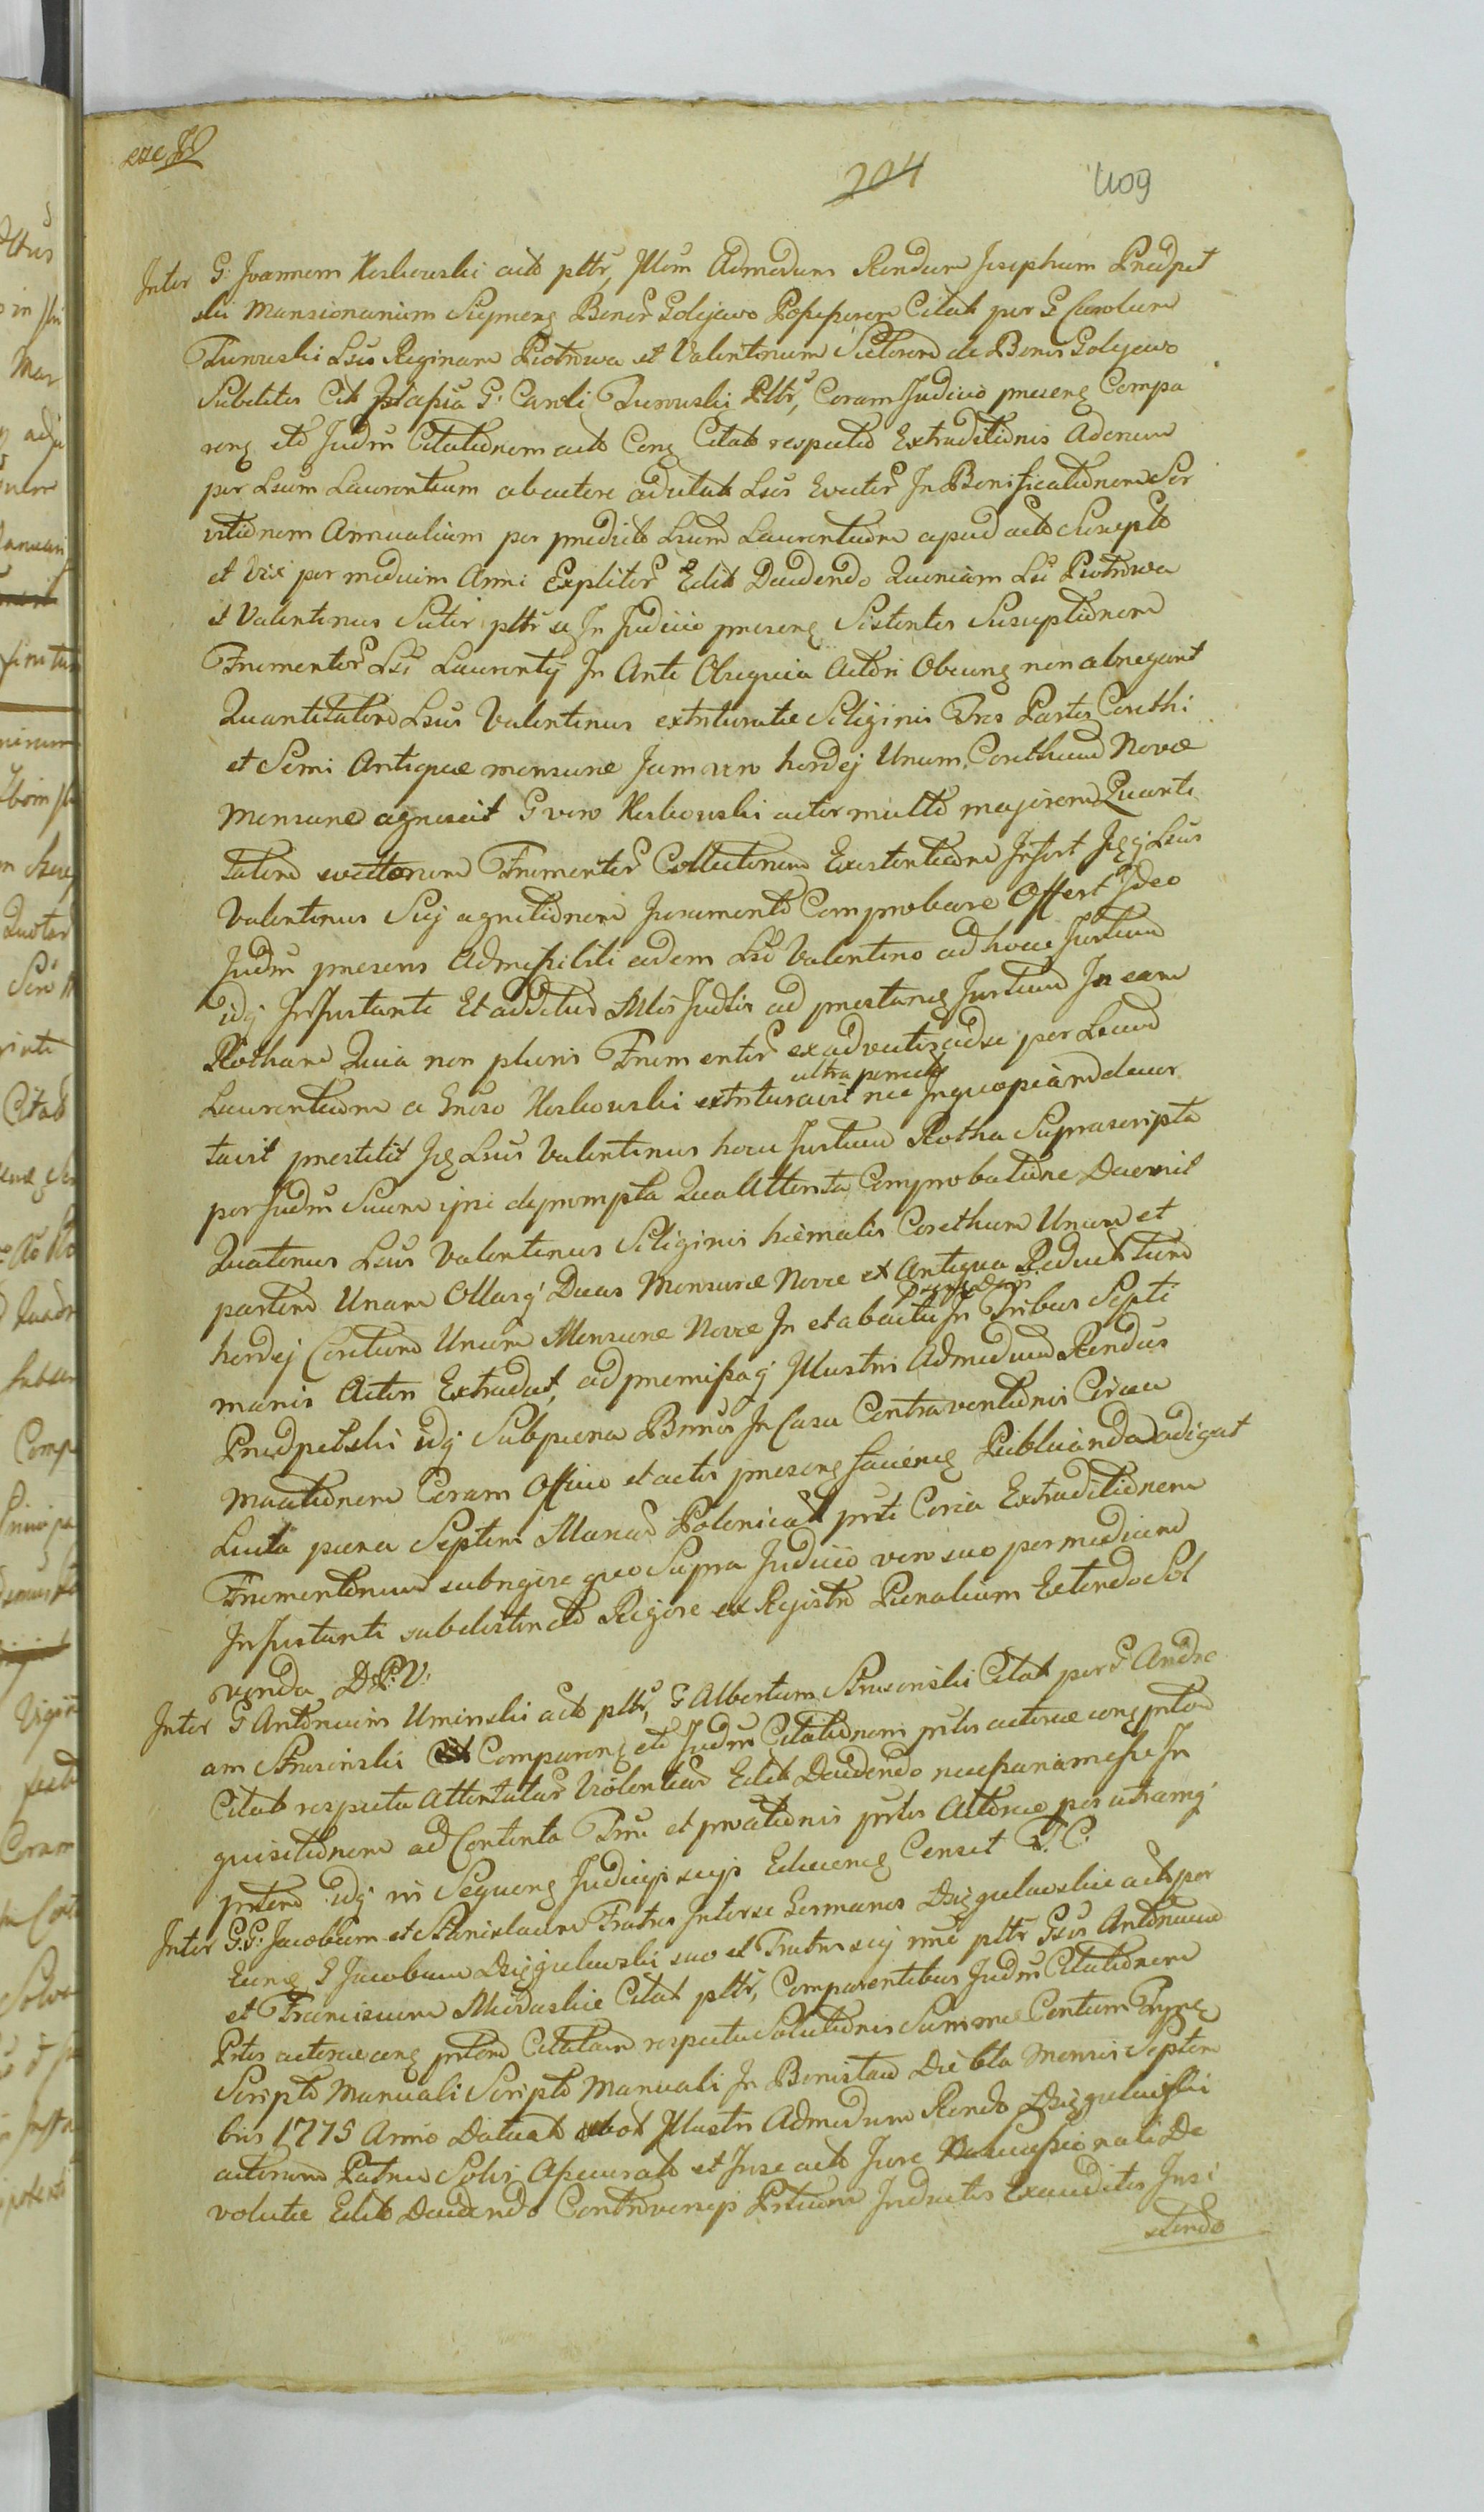 204 409
Inter G. Joannem Koskowski act. pltr, Illm Admodum Rendum Josephum Przedpeł
ski Mansionarium Bonor Golejewo Possessorem Citat per G Carolum
Turowski Lsus Reginam Piotrowa et Valentinum Sutorem de Bonis Golejewo
Subditos Cit G. Caroli Turowski Pltr, Coram Judicio presenz Compa
renz etc Judm Citationem act Conz Citat respectu Extraditionis Adorum
per Lsum Laurentium ab actore Lsos In Bonificationem Ser
vitionem Annualium per predict Lsum Laurentium apud act Suscepto
et Vix per medium Anni Explitor Edit Ducendo Quoniam Lsi Piotrowa
et Valentinus Sutor pltr se In Judicio presenz Sistentes Susceptionem
Frumentor Lsi Laurentij In Ante Obsequia Actori Obeunz non abnegant
Quantitatem Lsus Valentinus extriturate Siliginis Tres Partes Corethi
et Semi Antiquae mensurae Jam vero hordej Unum Corethum Novae
Mensurae agnoscit G vero Koskowski actor multo majorem Quanti
tatem evectorum Frumentor Collectorum Existentiam Infert Isq Lsus
Valentinus Suj agnitionem Juramento Comprobare Offert Ideo
Judm presens Admissibili eidem Lso Valentino ad hocce Jurtum
idq Instanti Et additus Mlis Judlis ad prestanz Jurtum In eam
Rotham Quia non pluris Frumentor ex advectis ad se per Lsum
Laurentium a Gnoso Koskowski extrituravit nec Inquopiam devor
tavit prestitit Isq Lsus Valentinus hocce Jurtum Rotha Suprascripta
per Judm Suum ipsi deprompta Qua Attenta Comprobatione Decernit
Quatenus Lsus Valentinus Siliginis hiemalis Corethum Unum et
partem Unam Ollasq Duas Mensurae Novae ex Antiqua Reduct tum
hordej Corethum Unum Mensurae Novae In et ab actu In Tribus Septi
manis Actori Extradat, ad premissaq Illustris Admodum Rendus
Przedpełski idq Subpoena Bnnis In Casu Contraventionis Circa
Coram Officio et actis presenz facienz Publicanda adigat
Luita poena Septem Marcar Polonical prti Coria Extraditionem
Frumentorum subrigore quo Supra Judicio vero suo per medium
Instanti subdistincto Rigore ex Registro Poenalium Extendo Sol
venda D.P.V.
Inter G Antonium Uminski act pltr, G Albertum Strusinski Citat per G Andre
am Strusinski Comparenz etc Judm Citationem prtis actoreae conz prtem
Citat respectu Attentatar Violentiar Edit Ducendo necessariam esse In
quisitionem ad Contenta Tmi et proationis prtis Actoreae per utramq
prtem idq in Sequenz Judicijs suis Educenz Censet T. C.
Inter G.G. Jacobum et Stanislaum Fratres Interse Germanos Dzięgielewskie act per
Eunz G Jacobum Dzięgielewski suo et Fratris sui nne pltr Gsos Antonium
et Franciscum Mioduskie Citat pltr, Comparentibus Judm Citationem
Prtis actoreae conz prtem Citatam respectu Solutionis Summae Centum Tynz
Scripto Manuali Scripto Manuali In Bonis Diebla Mensis Septem
bris 1775 Anno Datuat Illustri Admodum Rendo Dzięgielewski
actorum Patruo Solvi Assecurat et Inse act Jure Successionali De
volutae Edit Ducendo Controversijs Prtium Inductis Exauditis Insi
stendo